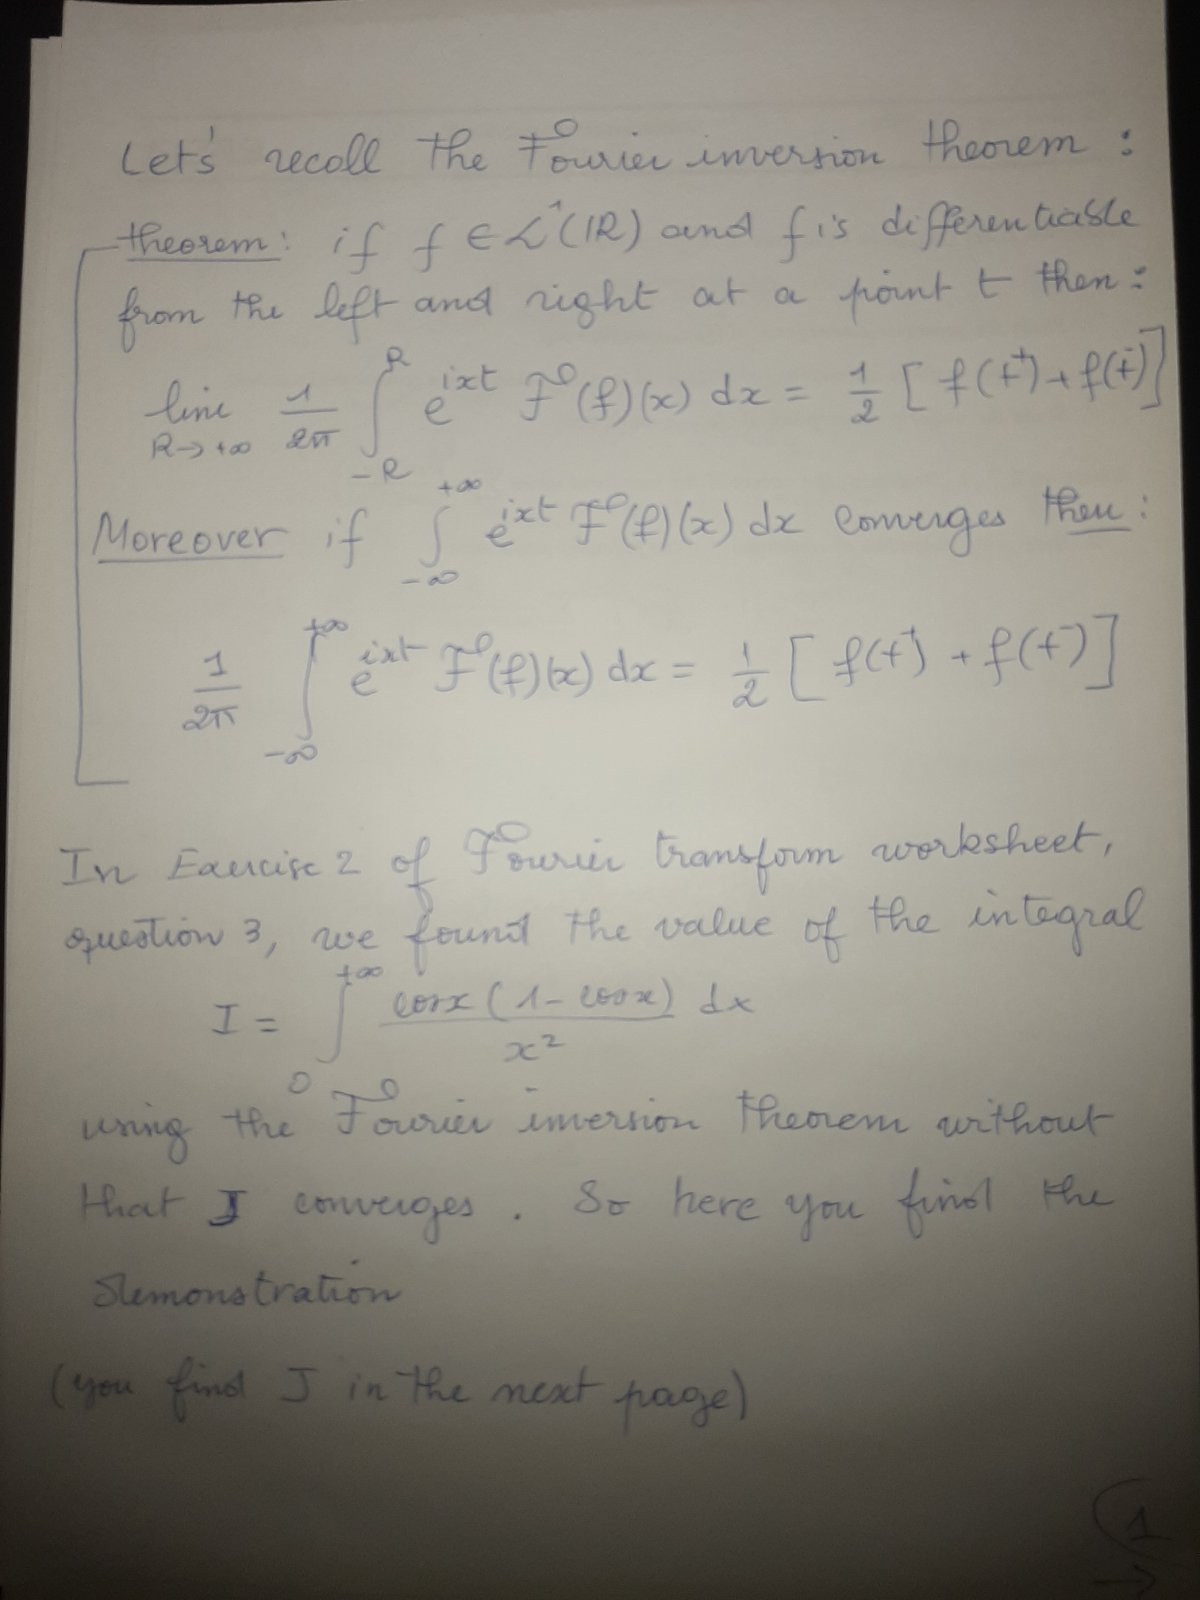 Let's recall the Fourier inversion theorem :
theorem : if f ∈ L¹(IR) and f is differentiable
from the left and right at a point t then :
lim R→+∞ 1/2π ∫_{-R}^{R} e^{ixt} F(f)(x) dx = 1/2 [ f(t⁺) + f(t⁻) ]
Moreover if ∫_{-∞}^{+∞} e^{ixt} F(f)(x) dx converges then :
1/2π ∫_{-∞}^{+∞} e^{ixt} F(f)(x) dx = 1/2 [ f(t⁺) + f(t⁻) ]
In Exercise 2 of Fourier transform worksheet,
question 3, we found the value of the integral
I = ∫_{0}^{+∞} cosx (1 - cosx) / x² dx
using the Fourier inversion theorem without
that J converges . So here you find the
demonstration
(you find J in the next page)
1
→